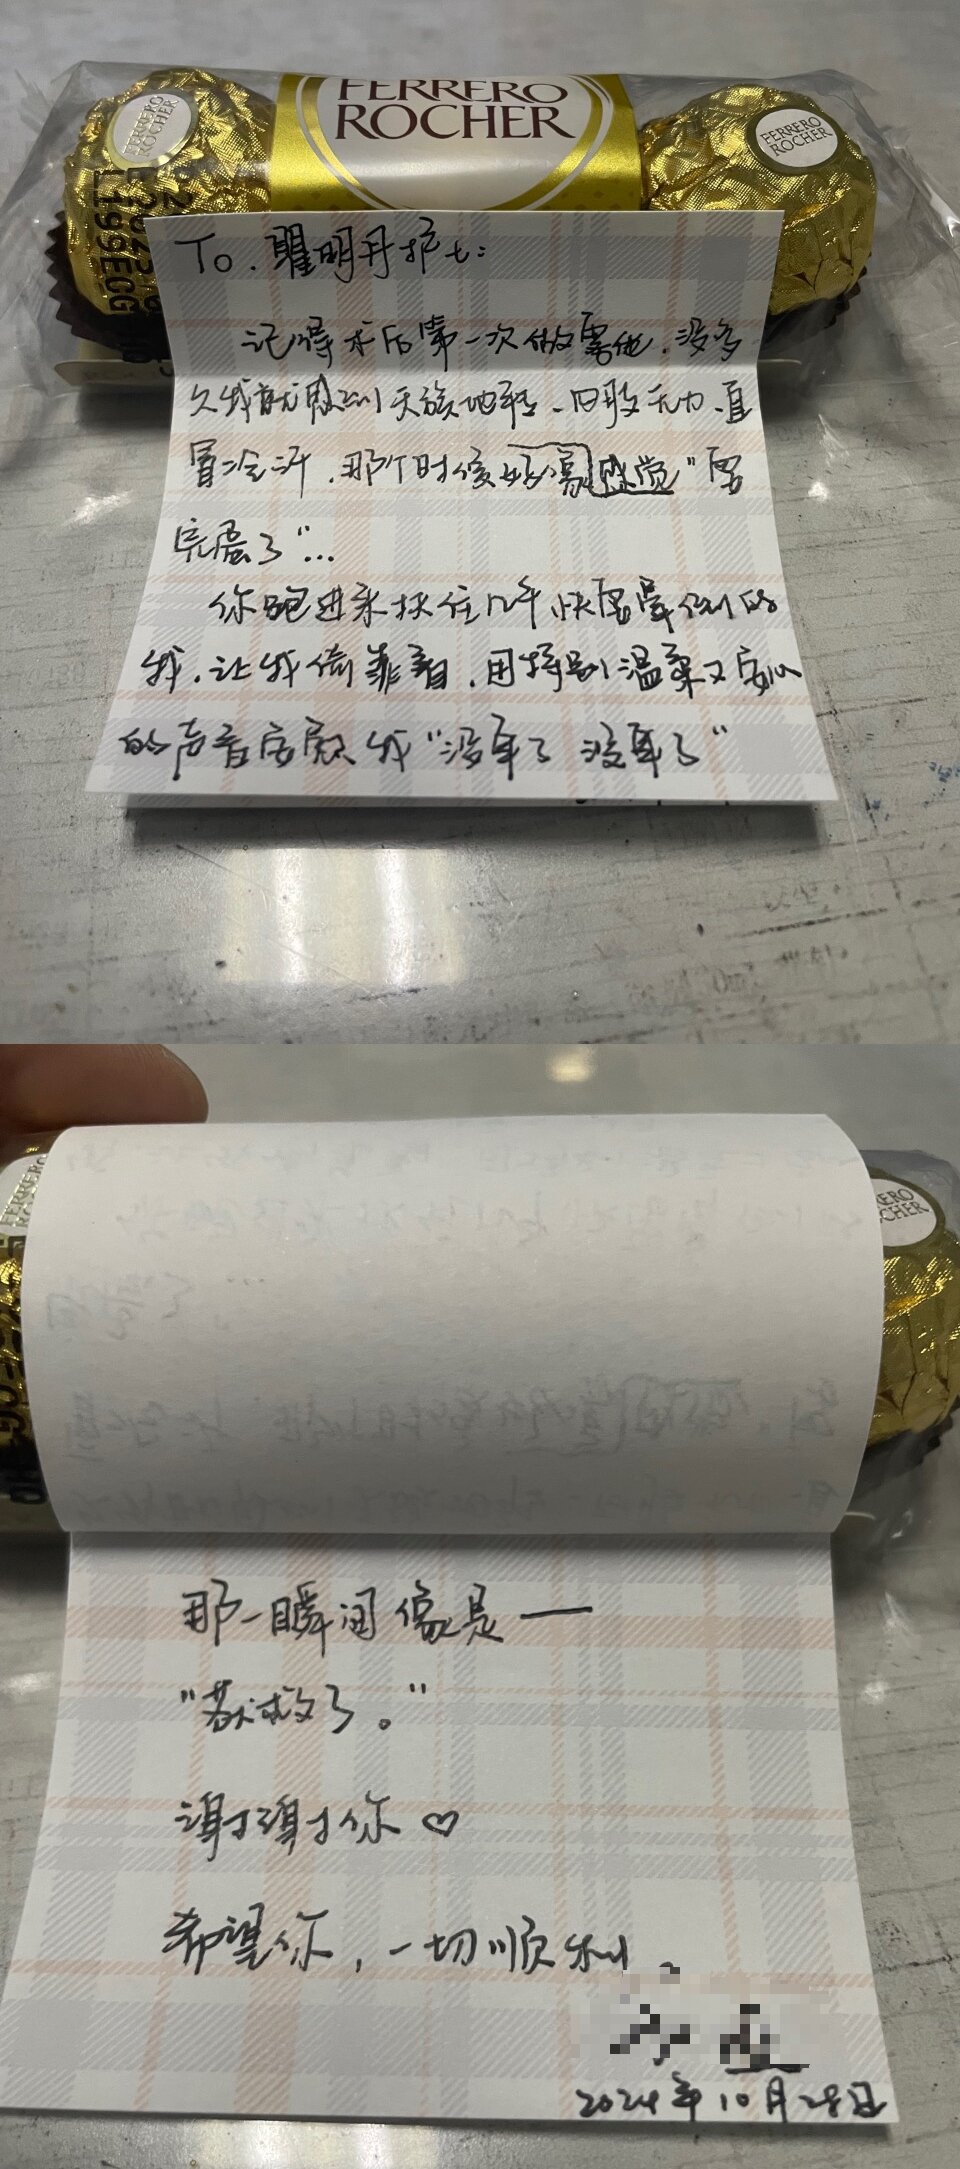 FERRERO
ROCHER
FERRERO
ROCHER
FERRERO
ROCHER
L199ECG
To. 瞿明丹护士:
记得术后第一次做雾化，没多
久我就感到天旋地转、四肢无力、直
冒冷汗，那个时候好像感觉"要
完蛋了"...
你跑进来扶住几乎快要晕倒的
我，让我倚靠着，用特别温柔又安心
的声音安慰我"没事了 没事了"
FERRERO
那一瞬间像是——
"获救了。"
谢谢你♡
希望你，一切顺利。
2024年10月28日